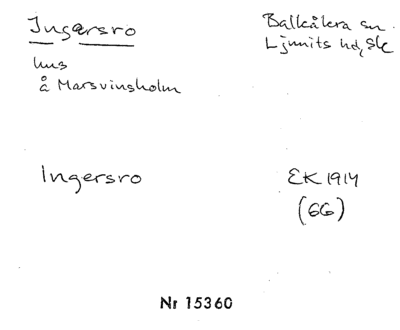 Ingersro
Balkåkra sn.
Ljunits hd, Sk
hus
å Marsvinsholm
Ingersro
EK 1914
(GG)
Nr 15360